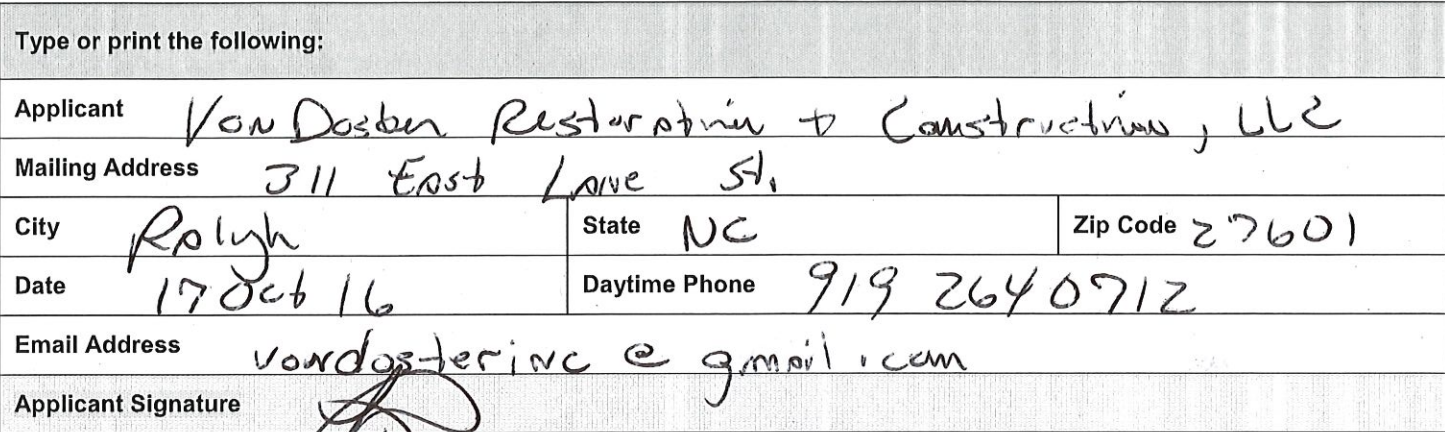 Type or print the following:
Applicant Von Doster Restoration + Construction, LLC
Mailing Address 311 East Lane St.
City Ralgh State NC Zip Code 27601
Date 17 Oct 16 Daytime Phone 919 264 0712
Email Address vondosterinc @ gmail.com
Applicant Signature